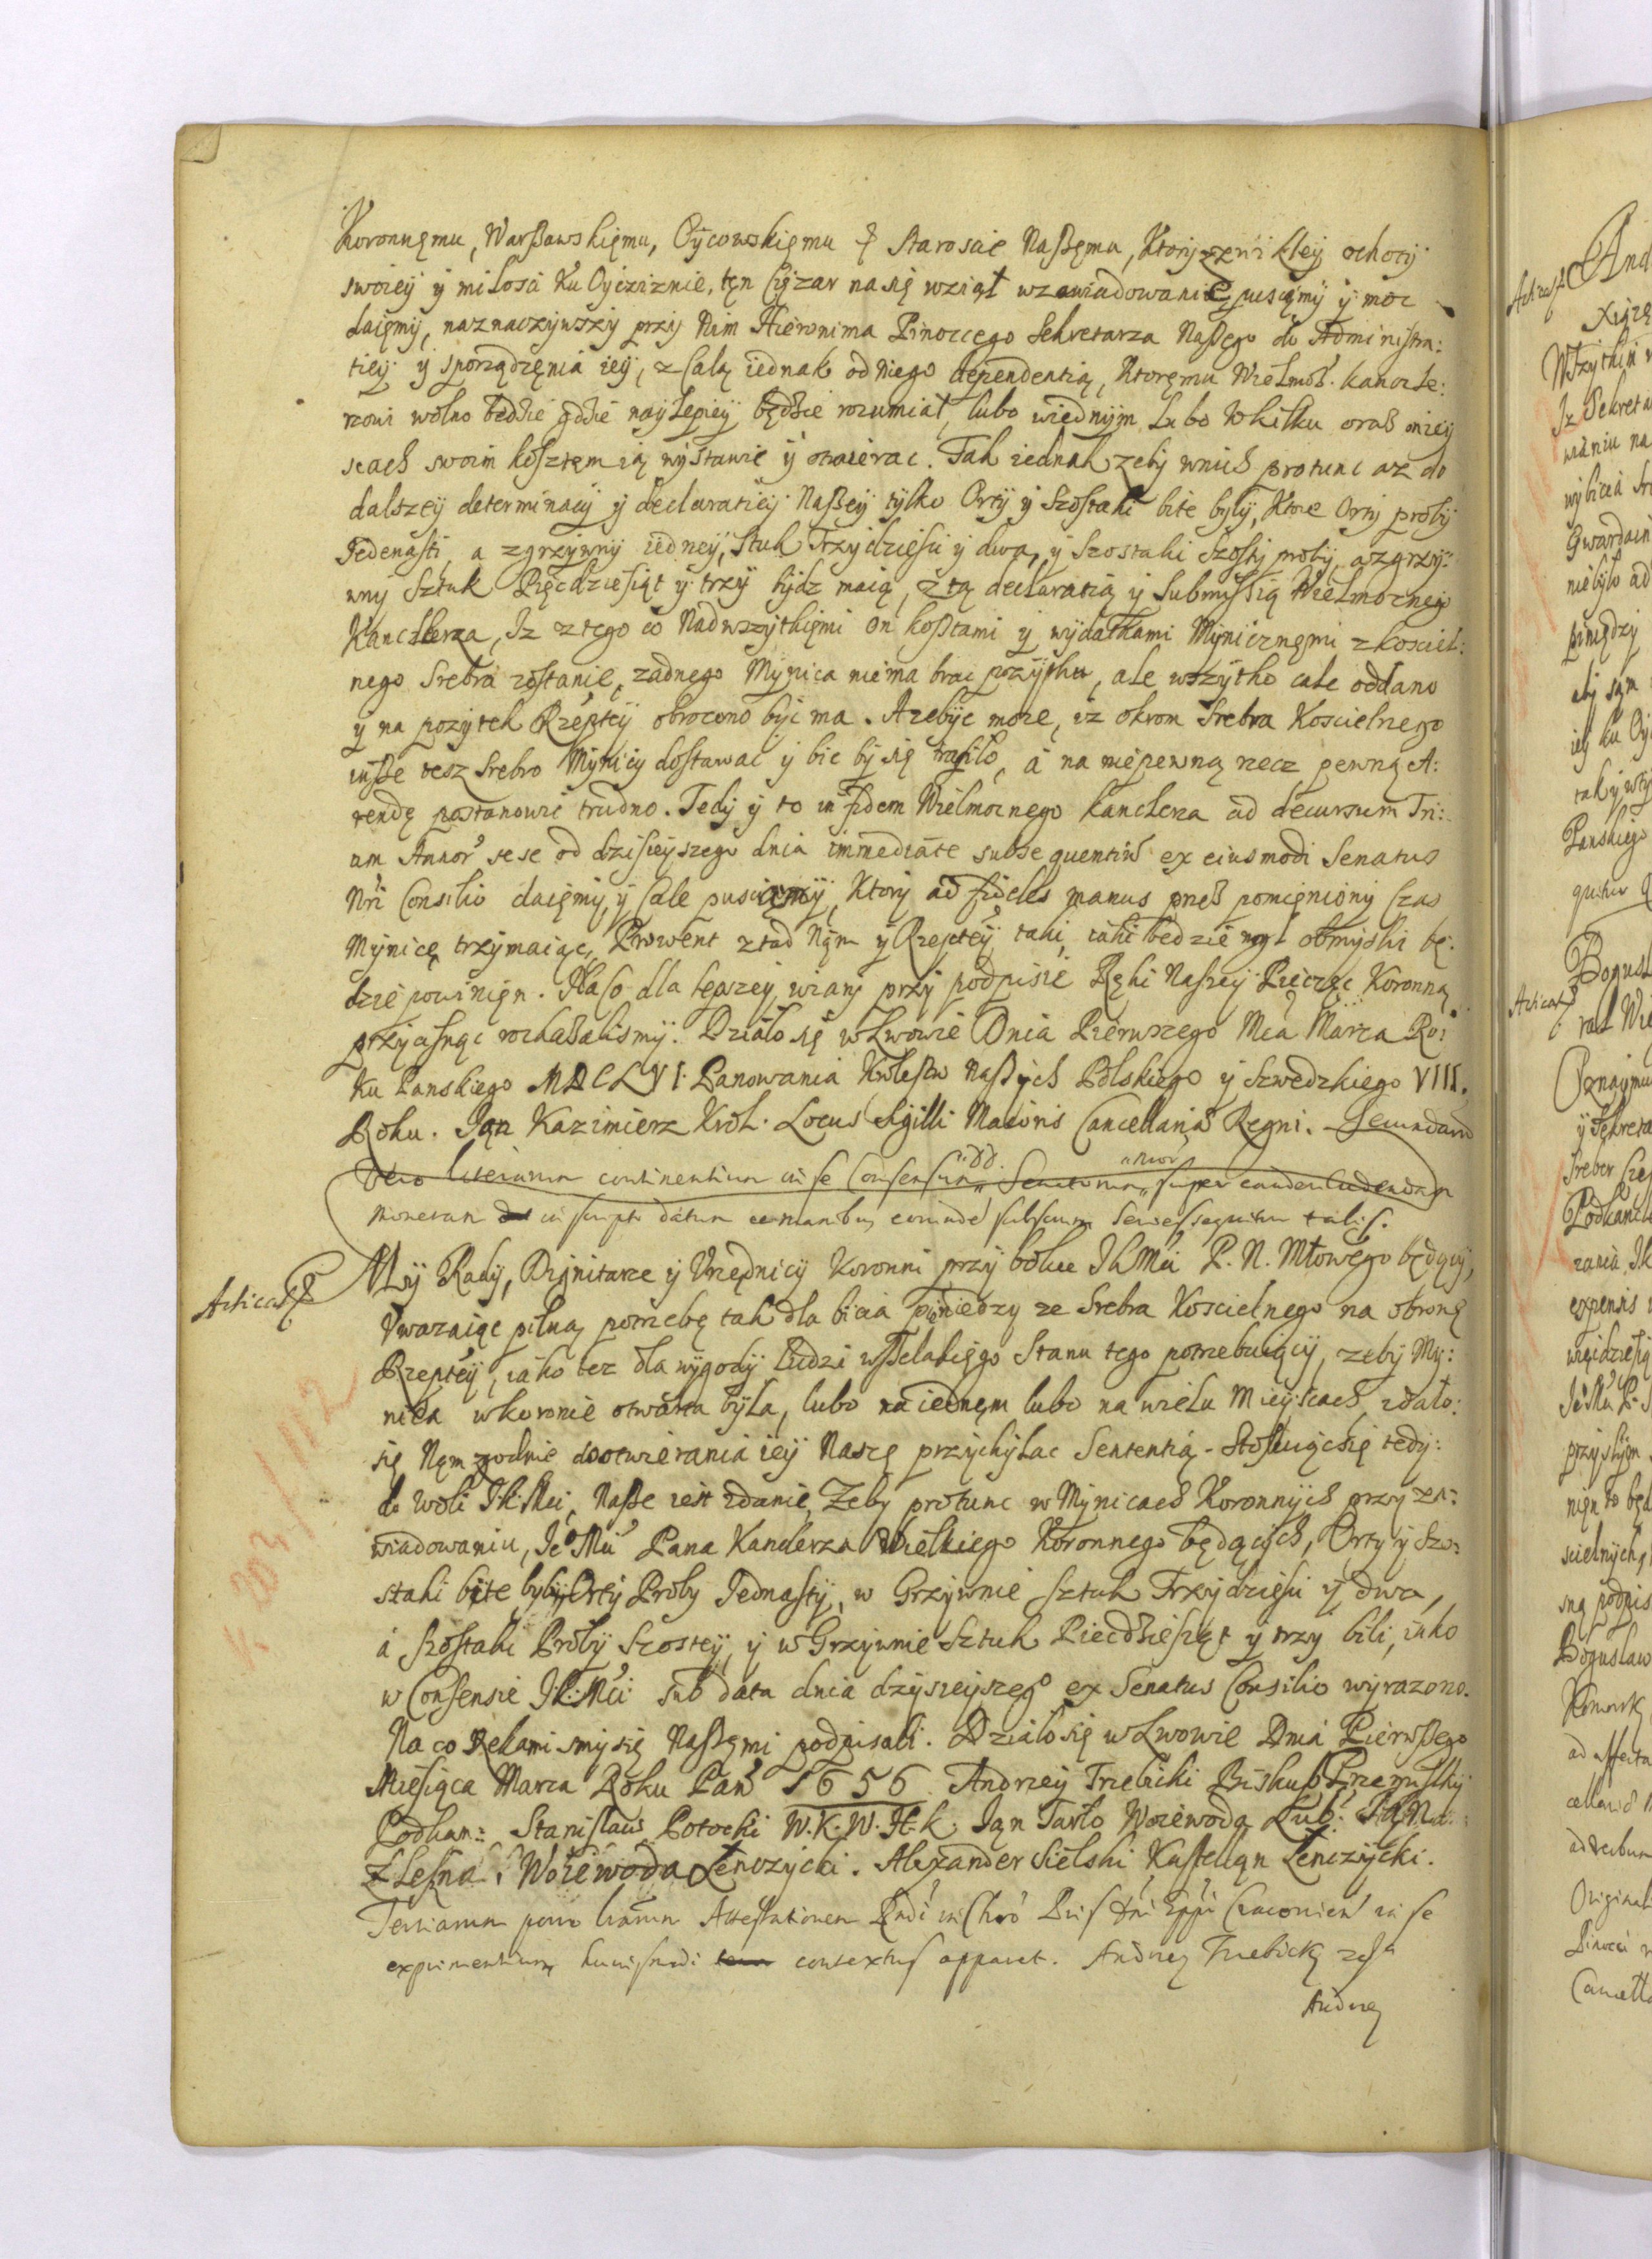 Koronnęmu, Warßawskięmu, Oÿcowskięmu & Staroscie Naßęmu, Ktorÿ zewikleÿ ochotÿ
swoieÿ ÿ miłosci Ku Oÿcziznie, tęn Ciężar na się wziął wzawiadowanie pusczęmÿ ÿ moc
daięmÿ, naznaczÿwszÿ przÿ Nim Hieronima Pinoccego Sekretarza Naßego do Administra:
tieÿ ÿ sporządzęnia ieÿ, z Całą iednak od Niego dependentią, Ktoręmu Wielmoż. Kancle:
rzowi wolno będzie gdzie naÿlepieÿ będzie rozumiał, lubo wiednÿm lubo w kilku oraz mieÿ
scach swoim kosztęm ią wÿstawić ÿ otwierac. Tak iednak zebÿ wnich protunc az do
dalszeÿ determinaciÿ ÿ declaratieÿ Naßeÿ tÿlko Ortÿ ÿ Szostaki bite bÿłÿ, Ktore Ortÿ probÿ
Jedenasti, a zgrzÿwnÿ iedneÿ, Stuk Trzÿdziesci ÿ dwa, ÿ Szostaki Szostÿ probÿ, a zgrzÿ:
wnÿ Sztuk Pięcdziesiąt ÿ trzÿ bÿdz maią, z tą declaratią ÿ Submissią Wielmoznego
Kanclerza, Iz z tego co Nadwszÿtkięmi on koßtami ÿ wÿdatkami Mÿnicznęmi z koscieł:
nego Srebra zostanie, zadnego Mÿnica nie ma brac pozÿtku, ale wszÿtko cale oddano
ÿ na pozÿtek Rzepteÿ obrocono bÿc ma. A zebÿc moze, iz okrom Srebra Koscielnego
inße tesz Srebro Mÿnicÿ dostawac ÿ bic bÿ się trafiło, a na niepewną rzecz pewną A:
rendę postanowić trudno. Tedÿ ÿ to in fidem Wielmoznego Kanclerza ad decursum Tri:
um Annor sese od dzisieÿszego dnia immediate subsequentiũ ex eiusmodi Senatus
Nri Consilio daięmÿ, ÿ Cale pusczęmÿ, Ktorÿ ad fideles manus przes pomięnionÿ Czas
Mÿnicę trzÿmaiąc, Prowent ztąd Nąm ÿ Rzeptey taki, iaki bedzie mogł obmÿslic bę:
dzie powinięn. Na co dla lepszeÿ wiarÿ przÿ podpisie Ręki Naszeÿ Pieczęc Koronną
przÿcisnąc roskazalismÿ. Działo się w Lwowie Dnia Pierwszego Mca Marca Ro:
ku Panskiego MDCLVI. Panowania Krolestw Naßÿch Polskiego ÿ Szwedzkiego VIII.
Roku. Jąn Kazimierz Krol. Locus Sigilli Maioris Cancellariæ Regni. Secundarũ
Vero literarum continentium in se Consensum DD. Senatorum super eandem cudendam
monetam in scripto datum ac manibus eorundẽ subscriptum Series sequitur talis.
Acticat
Mÿ Radÿ, Dignitarze ÿ Vrzędnicÿ Koronni przÿ boku JKMci P. N. Młowego będącÿ,
Vwazaiąc pilną potrzebę tak dla bicia pieniedzy ze Srebra Koscielnego na obronę
Rzepteÿ, iako tez dla wÿgodÿ Ludzi wßelakięgo Stanu tego potrzebuiącÿ, zebÿ Mÿ:
nica wkoronie otwarta bÿła, lubo na iednęm lubo na wielu Mieÿscach, zdało:
się Nąm zgodnie do otwierania ieÿ Naszę przÿchÿlac Sententią. Stosuiąc się tedÿ:
do woli JK.Mci, Naße iest zdanie, Zeby protunc w Mÿnicach Koronnÿch przy za:
wiadowaniu, Je° Mci Pana Kanclerza Wielkiego Koronnego będącÿch, Ortÿ ÿ Szo:
staki bite byłÿ, Ortÿ Proby Jednastÿ, w Grzÿwnie sztuk Trzÿdziesci ÿ dwa,
a Szostaki Probÿ Szosteÿ, ÿ w Grzÿwnie Sztuk Piecdziesiąt y trzy bili, iako
w Consensie JK.Mci sub data dnia dzÿsieÿszego ex Senatus Consilio wÿrazono.
Na co Rękami smÿ się Naßęmi podpisali. Działo się w Lwowie Dnia Pierwßego
Miesiąca Marca Roku Pań 1656. Andrzeÿ Trzebicki Biskup Przemÿslkÿ
Podkan: Stanislaus Potocki W.K.W.H.K. Jąn Tarło Woiewoda Lub: Jąn
z Leszna Woiewoda Łenczÿcki. Alexander Sielski Kasztellan Łenczÿcki.
Tertiarum porro lrarum Attestationem Rndi in Chro Pris Dni Eppi Cracovien in se
exprimentium huiusmodi contextus apparet. Andrzej Trzebicky
Andrzej
K 203/112